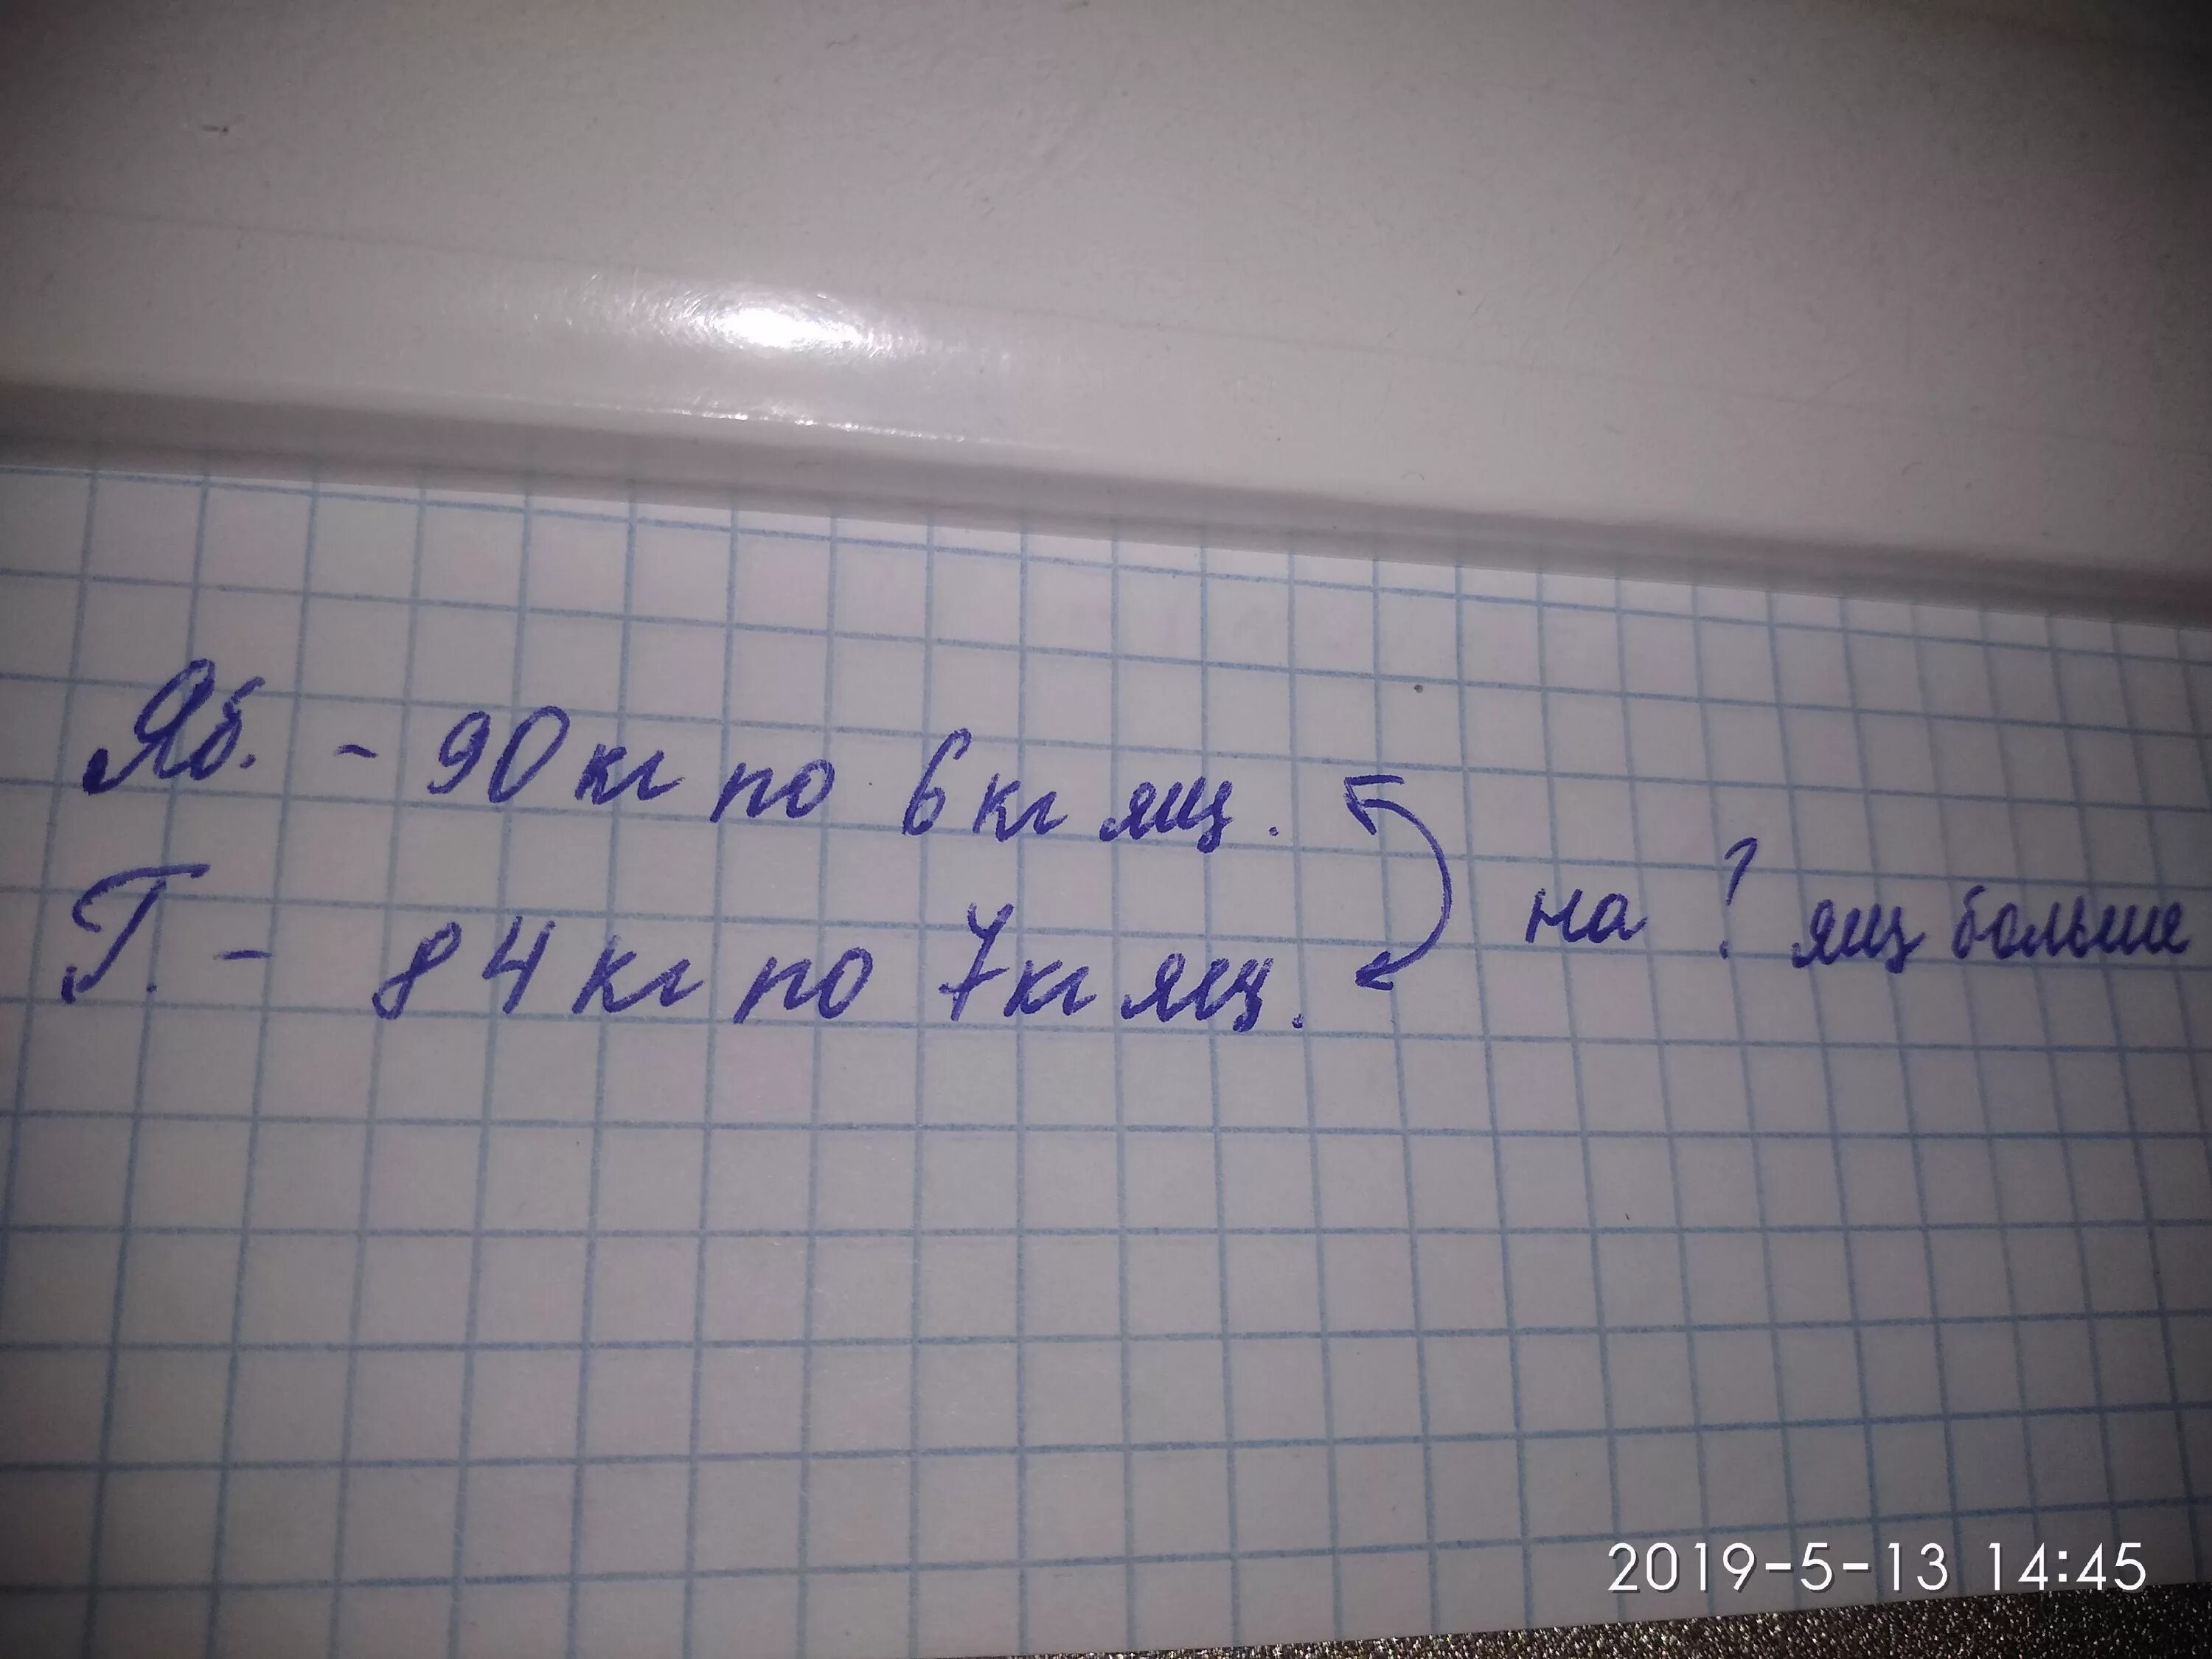 Яб. - 90 кг по 6 кг ящ.
Г. - 84 кг по 7 кг ящ.
на ? ящ больше
2019-5-13 14:45